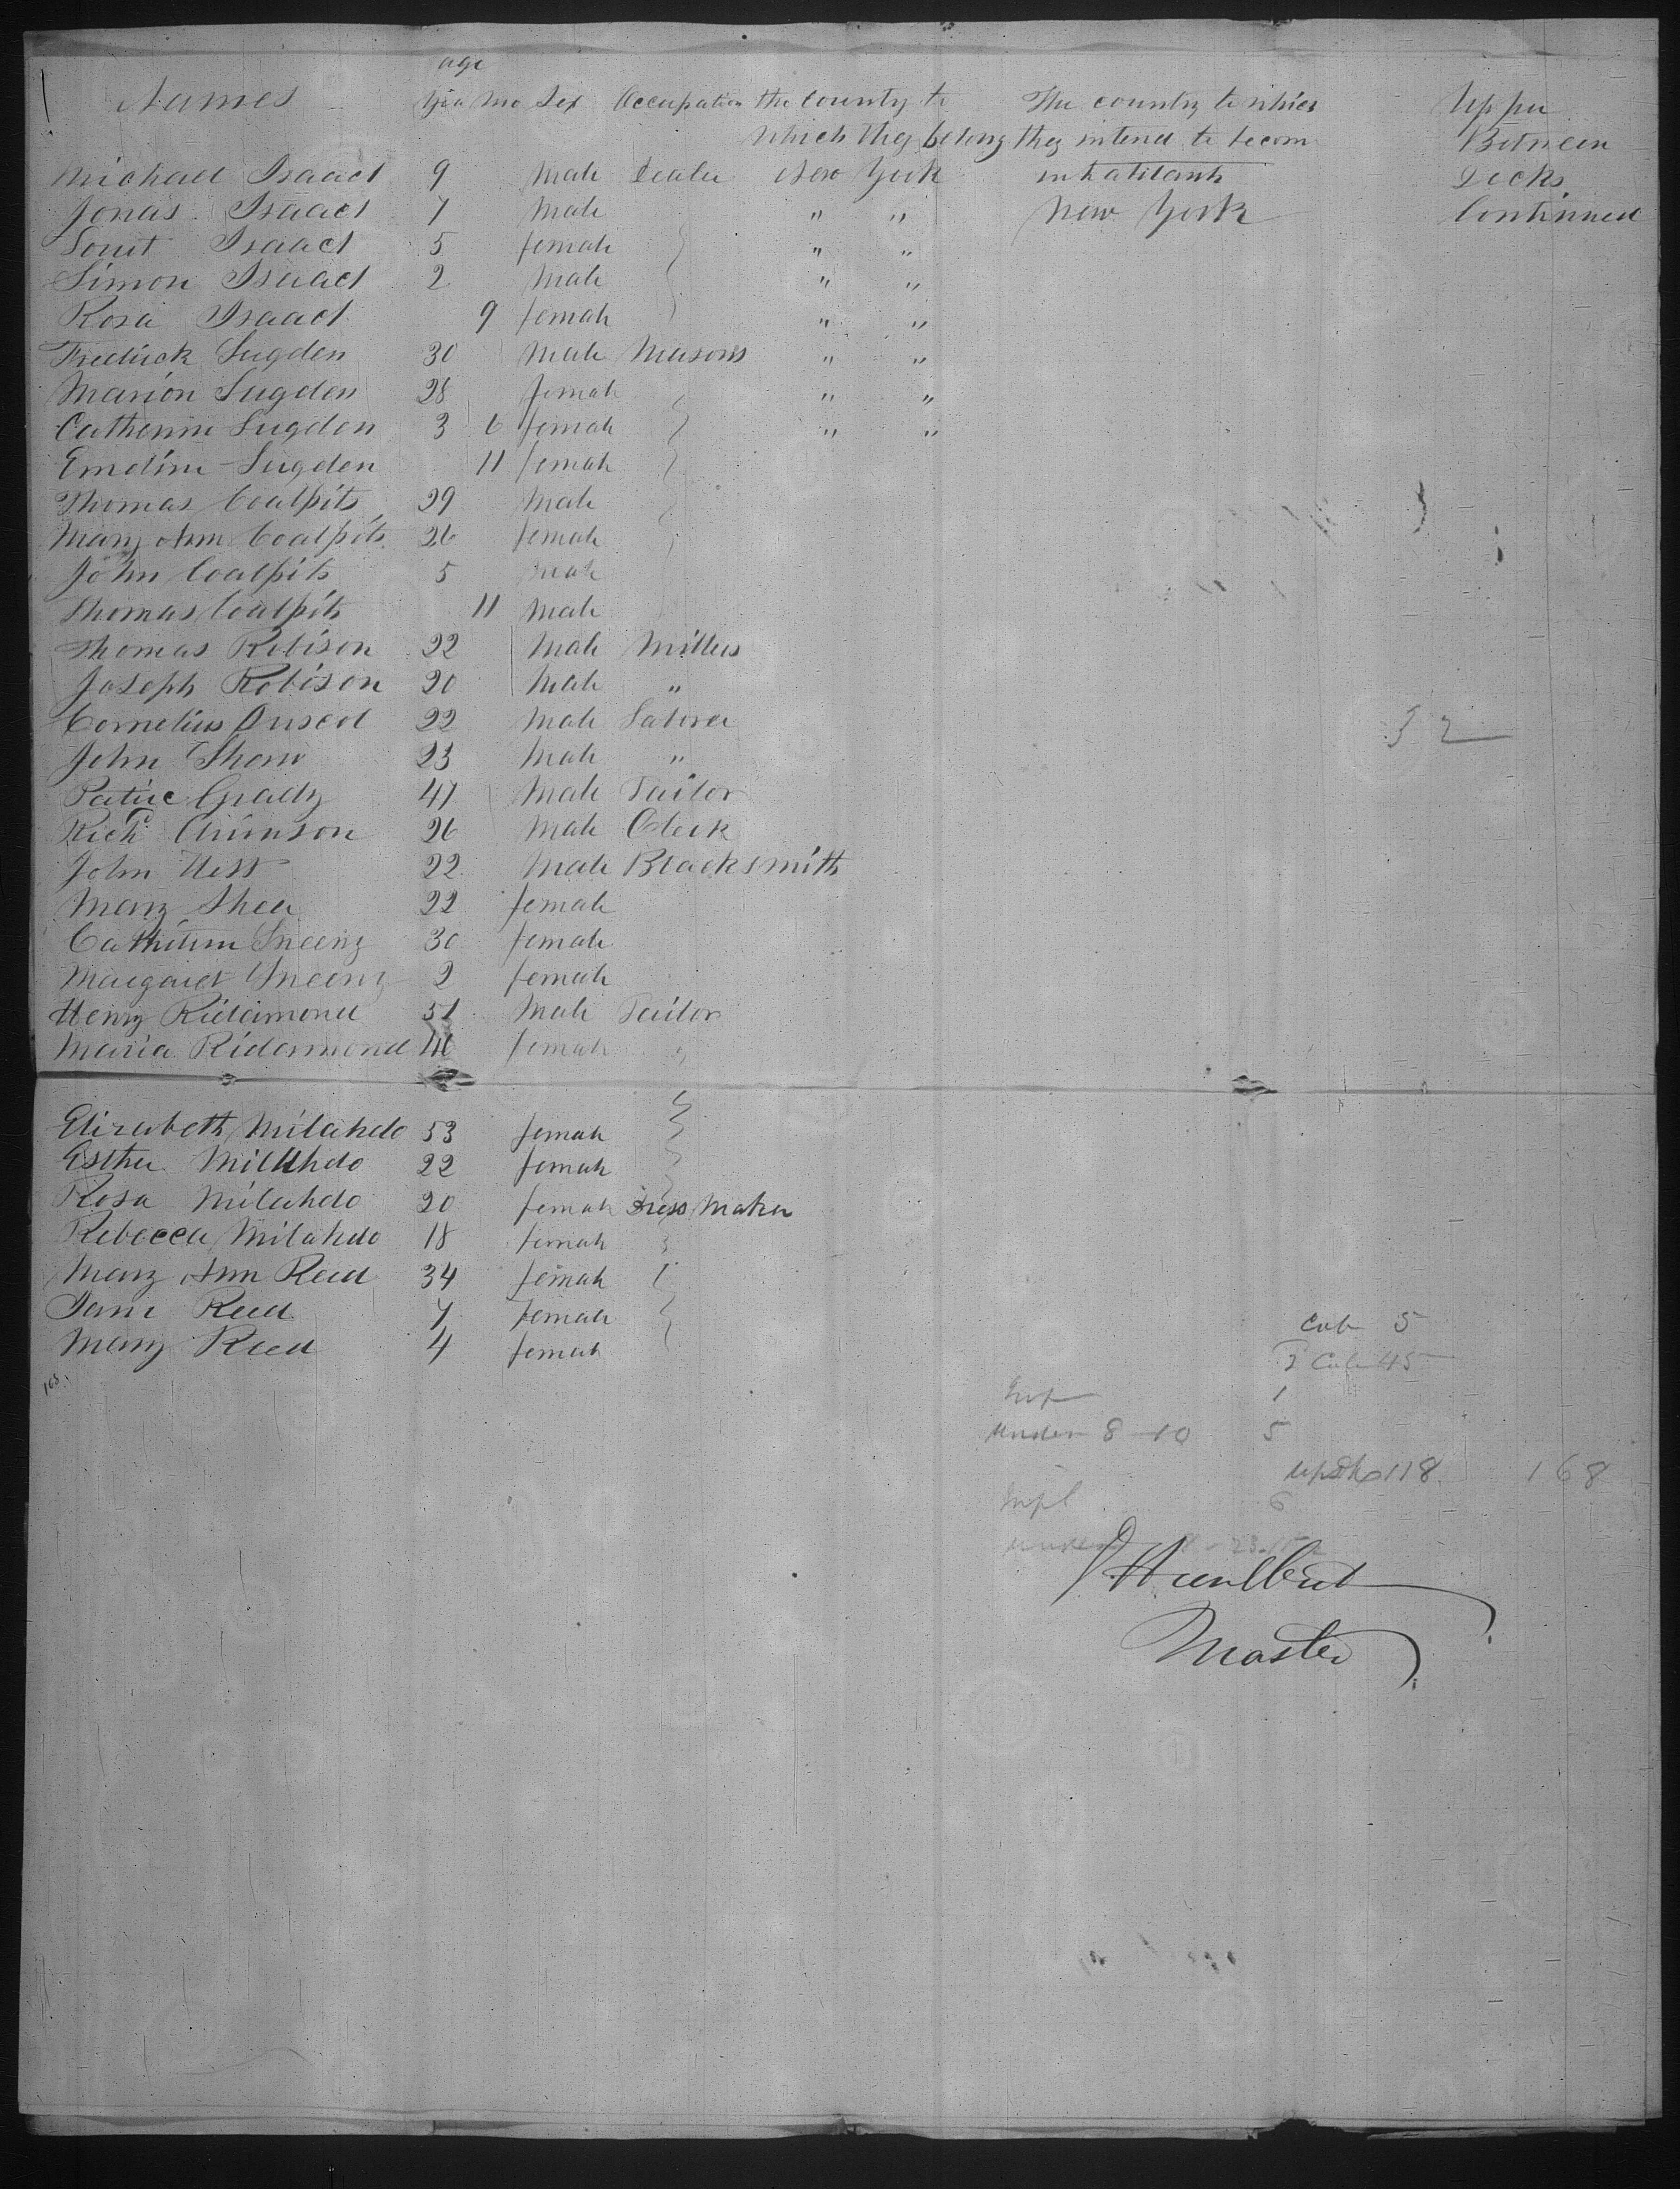 age
Names Yea Mo Sex Occupation the county to The country to which Upper
which they belong they intend to becom Between
Michael Isaacs 9 Male Dealer New York inhabitants Decks
Jonas Isaacs 7 Male " " New York Continued
Isaacs 5 female " "
Simon Isaacs 2 Male " "
Rosa Isaacs 9 female " "
Fredrick Sugden 30 Male Masons " "
Marion Sugden 28 female " "
Catherine Sugden 3 6 female " "
Emeline Sugden 11 female
Thomas Coalpits 29 Male
Mary Ann Coalpits 26 female
John Coalpits 5 Male
Thomas Coalpits 11 Male
Thomas Robison 22 Male Millers
Joseph Robison 20 Male "
Cornelius 22 Male Laborer
John Show 23 Male "
Patric Grady 47 Male Tailor
Richd 26 Male Clerk
John 22 Male Blacksmith
Mary Shea 22 female
Catherine Sneeny 30 female
Margaret Sneeny 2 female
Henry Ridamond 51 Male Tailor
Maria Ridamond 46 female "
Elizabeth Milahdo 53 female
Esther Milahdo 22 female
Rosa Milahdo 20 female Dress Maker
Rebecca Milahdo 18 female
Mary Ann Reed 34 female
Jane Reed 7 female
Mary Reed 4 female
Cab 5
2 Cab 45
1
under 8 - 10 5
118 168
6
Master